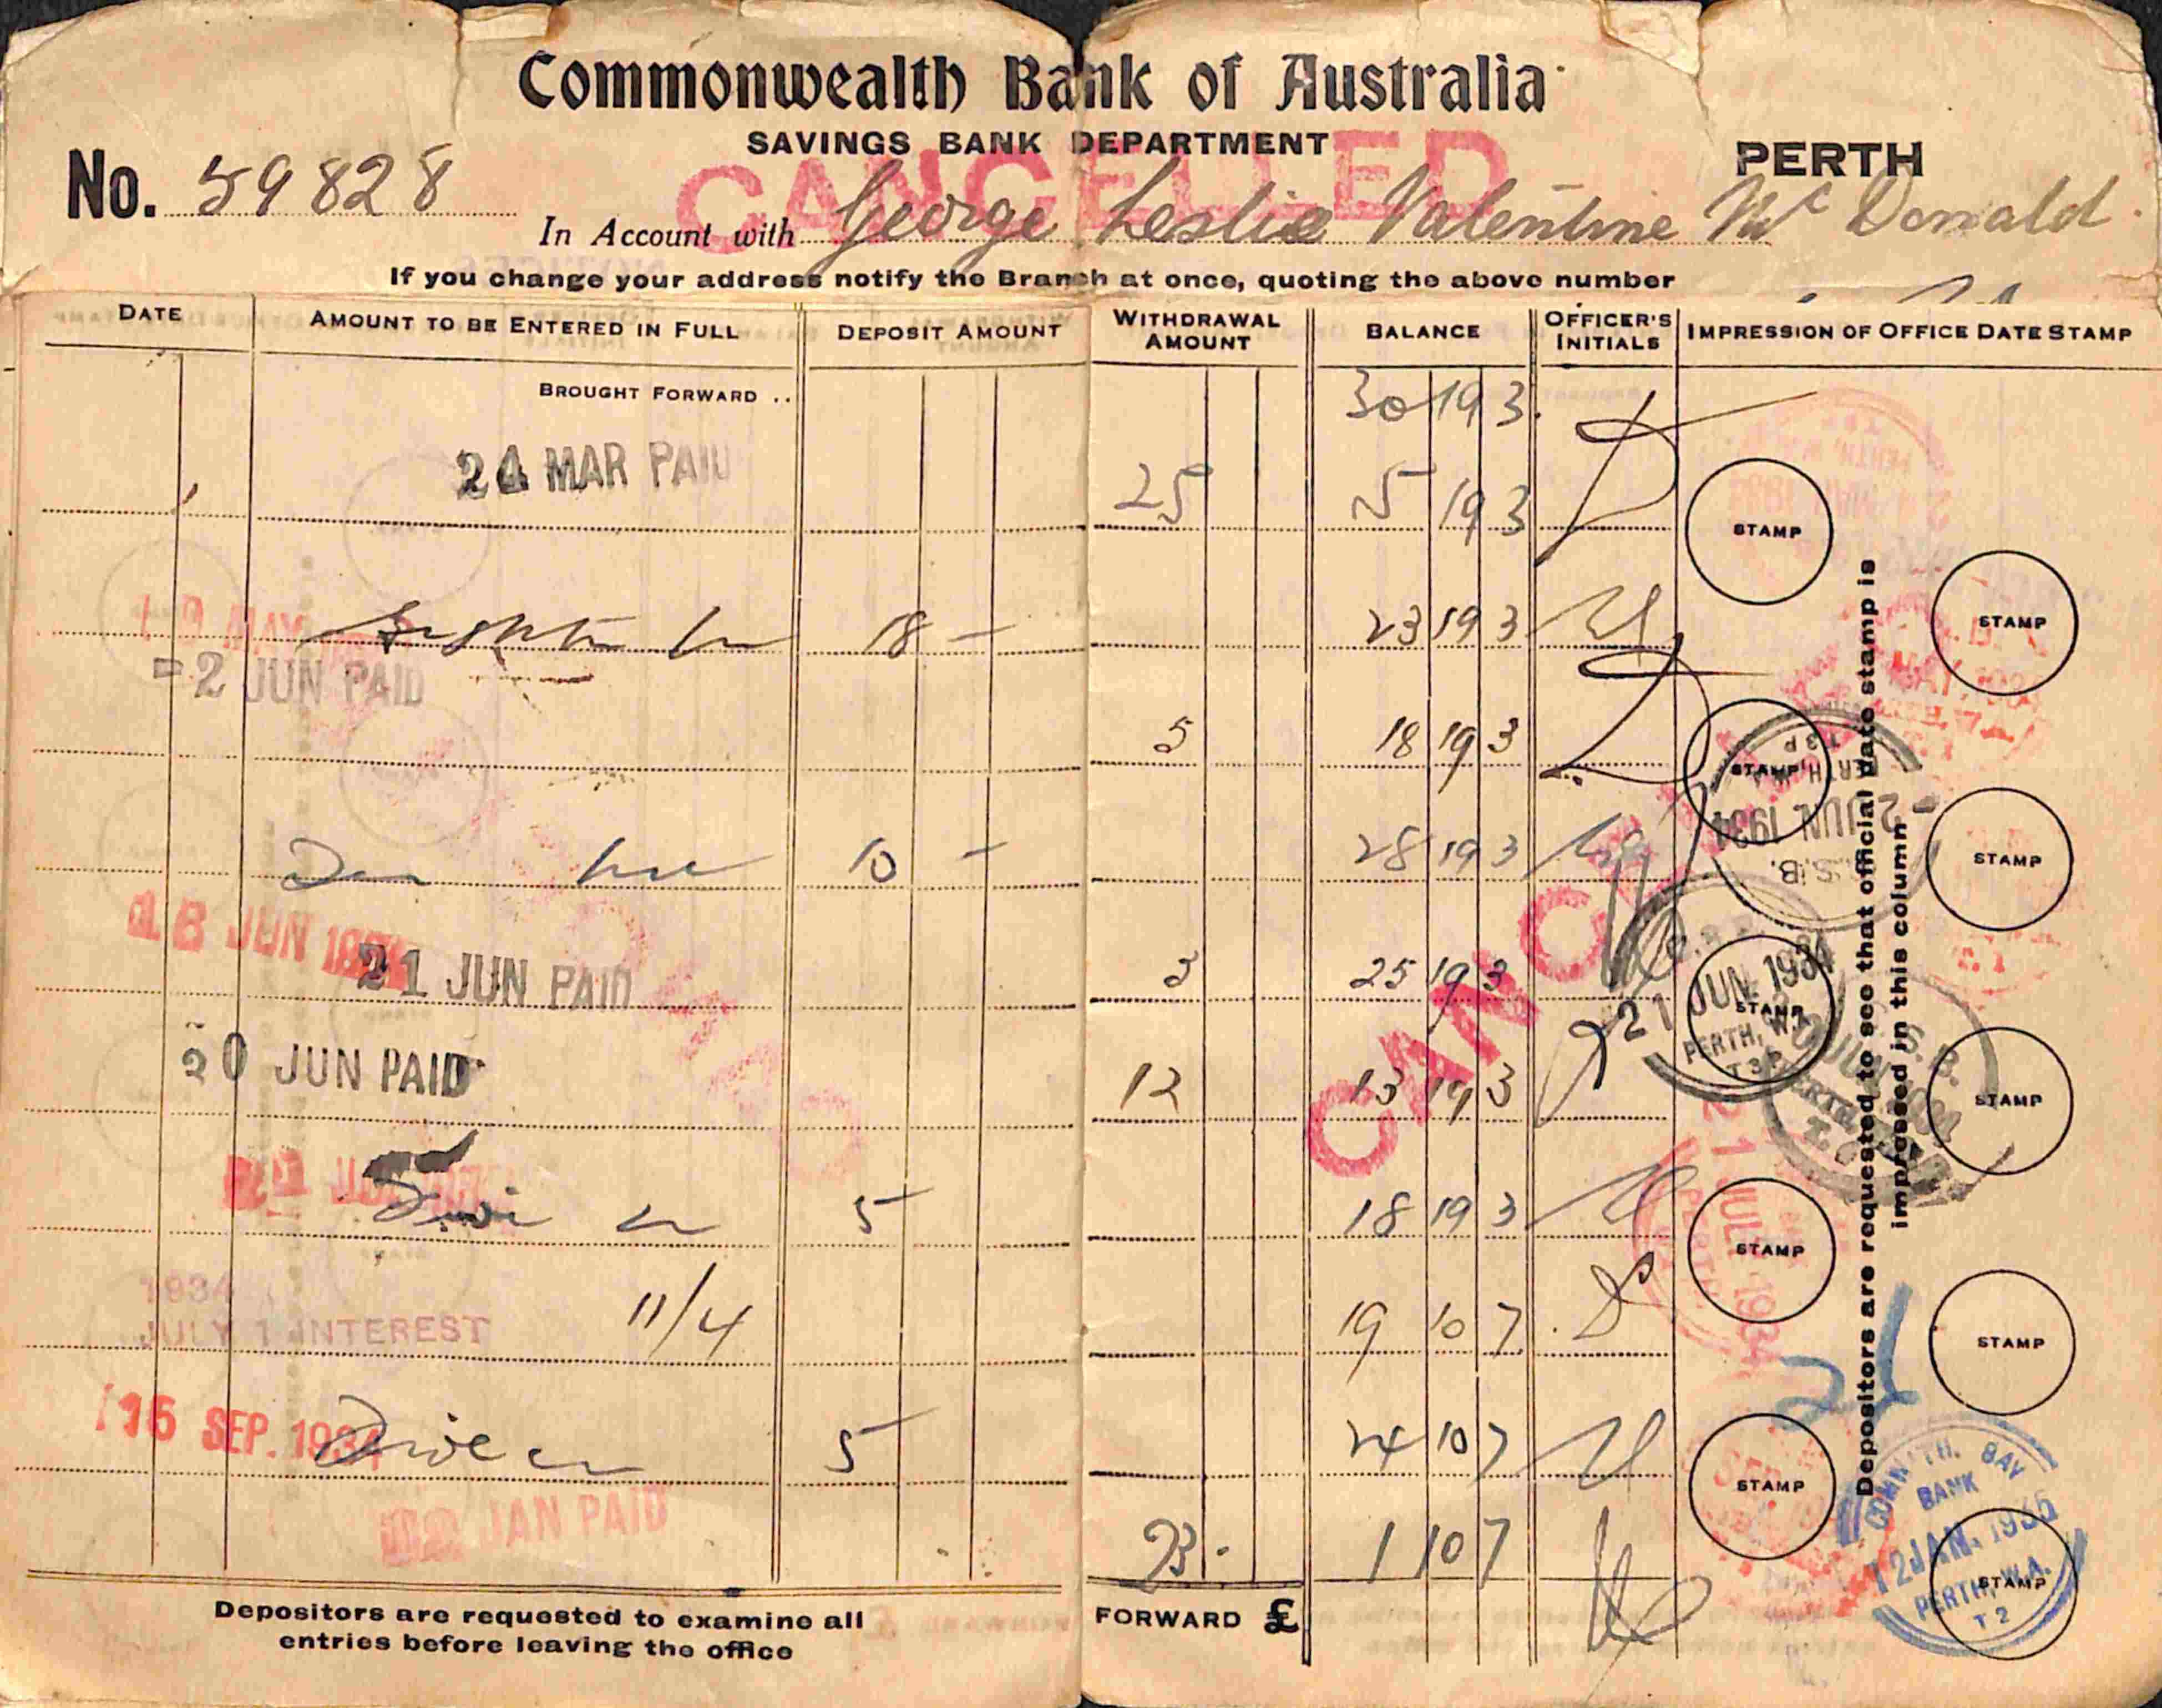 Commonwealth Bank of Australia
SAVINGS BANK DEPARTMENT
PERTH
CANCELLED
No. 59828
In Account with George Leslie Valentine Mc Donald
If you change your address notify the Branch at once, quoting the above number
DATE AMOUNT TO BE ENTERED IN FULL DEPOSIT AMOUNT WITHDRAWAL AMOUNT BALANCE OFFICER'S INITIALS IMPRESSION OF OFFICE DATE STAMP
BROUGHT FORWARD .. 30 19 3
24 MAR PAID 25 5 19 3
STAMP
MAY 18 — 23 19 3
STAMP
=2 JUN PAID 5 18 19 3
STAMP
T 3 P
PERTH, W.A.
-2 JUN 1934
S.B.
10 — 28 19 3
STAMP
18 JUN
21 JUN PAID 3 25 19 3
CANC
21 JUN. 1934
STAMP
PERTH, W.A.
T 3 P
20 JUN PAID 12 13 19 3
S.B.
STAMP
5 — 18 19 3
STAMP
21 JUL 1934
PERTH
1934
JULY 1 INTEREST 11/4 19 10 7
STAMP
16 SEP. 1934 Five 5 — 24 10 7
STAMP
JAN PAID 23 . 1 10 7
COMMWTH. BANK
12 JAN. 1935
STAMP
PERTH, W.A.
T 2
Depositors are requested to see that official date stamp is
impressed in this column
FORWARD £
Depositors are requested to examine all
entries before leaving the office